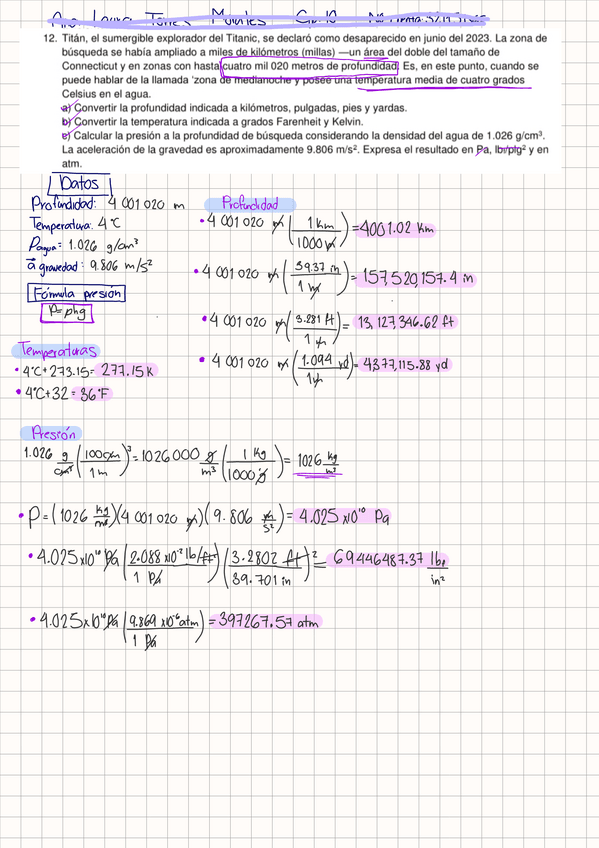 12. Titán, el sumergible explorador del Titanic, se declaró como desaparecido en junio del 2023. La zona de
búsqueda se había ampliado a miles de kilómetros (millas) —un área del doble del tamaño de
Connecticut y en zonas con hasta cuatro mil 020 metros de profundidad. Es, en este punto, cuando se
puede hablar de la llamada 'zona de medianoche y posee una temperatura media de cuatro grados
Celsius en el agua.
a) Convertir la profundidad indicada a kilómetros, pulgadas, pies y yardas.
b) Convertir la temperatura indicada a grados Farenheit y Kelvin.
c) Calcular la presión a la profundidad de búsqueda considerando la densidad del agua de 1.026 g/cm³.
La aceleración de la gravedad es aproximadamente 9.806 m/s². Expresa el resultado en Pa, lb/plg² y en
atm.
Datos
Profundidad: 4 001 020 m
Temperatura: 4°C
Pagua = 1.026 g/cm³
a gravedad: 9.806 m/s²
Fórmula presión
P=ρhg
Profundidad
• 4 001 020 m (1 km / 1000 m) = 4001.02 km
• 4 001 020 m (39.37 in / 1 m) = 157,520,157.4 in
• 4 001 020 m (3.281 ft / 1 m) = 13,127,346.62 ft
• 4 001 020 m (1.094 yd / 1 m) = 4377,115.88 yd
Temperaturas
• 4°C+273.15= 277.15 K
• 4°C+32 = 36°F
Presión
1.026 g/cm³ (100cm / 1m)³ = 1026000 g/m³ (1 Kg / 1000 g) = 1026 kg/m³
• P=(1026 kg/m³)(4 001 020 m)(9.806 m/s²) = 4.025 x10¹⁰ Pa
• 4.025x10¹⁰ Pa (2.088 x10⁻² lb/ft² / 1 Pa) (3.2802 ft / 39.701 in)² = 69446487.37 lbf/in²
• 4.025x10¹⁰ Pa (9.869 x10⁻⁶ atm / 1 Pa) = 397267.57 atm